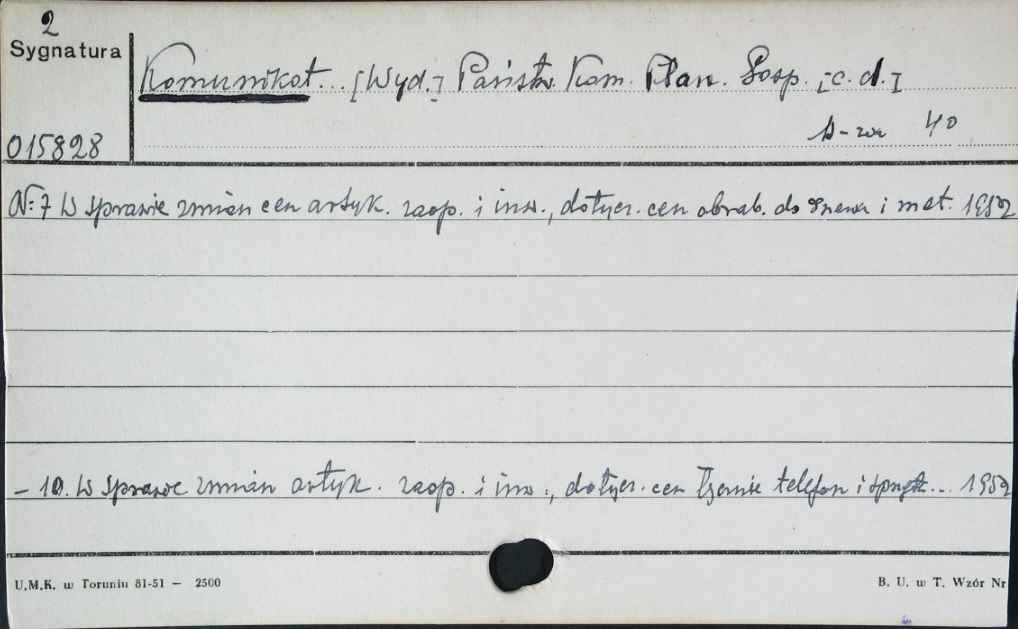 2
Sygnatura
Komunikat... [Wyd.] Państw. Kom. Plan. Gosp. [c. d.]
W-wa 4°
015828
Nr 7 W sprawie zmian cen artyk. zaop. i inw., dotycz. cen obrab. do drewa i met. 1952
– 10. W sprawie zmian artyk. zaop. i inw., dotycz. cen telefon i ... 1952
U.M.K. w Toruniu 81-51 — 2500
B. U. w T. Wzór Nr